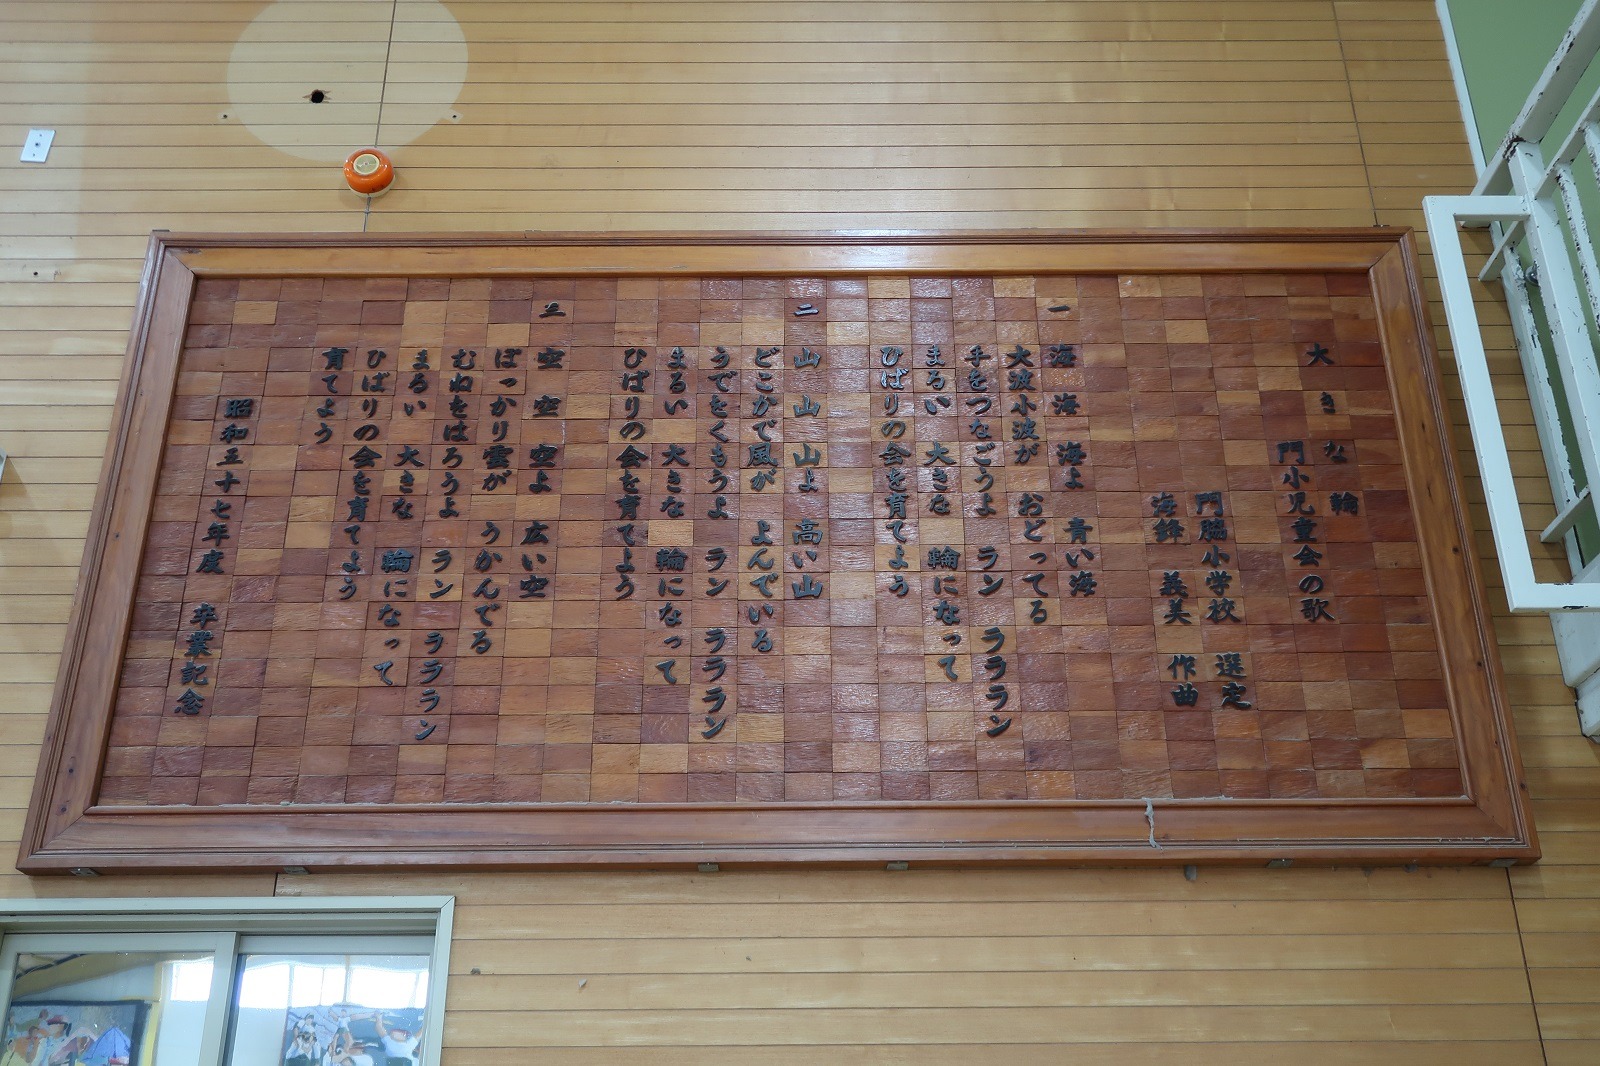 大きな輪
門小児童会の歌
門脇小学校 選定
海鋒 義美 作曲
一
海 海 海よ 青い海
大波小波が おどってる
手をつなごうよ ラン ララララン
まるい 大きな 輪になって
ひばりの会を育てよう
二
山 山 山よ 高い山
どこかで風が よんでいる
うでをくもうよ ラン ララララン
まるい 大きな 輪になって
ひばりの会を育てよう
三
空 空 空よ 広い空
ぽっかり雲が うかんでる
むねをはろうよ ラン ララララン
まるい 大きな 輪になって
ひばりの会を育てよう
育てよう
昭和五十七年度 卒業記念